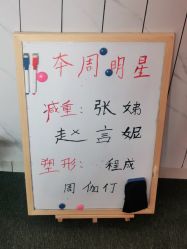 本周明星
减重：张娣
赵言妮
塑形：程成
周伽仃